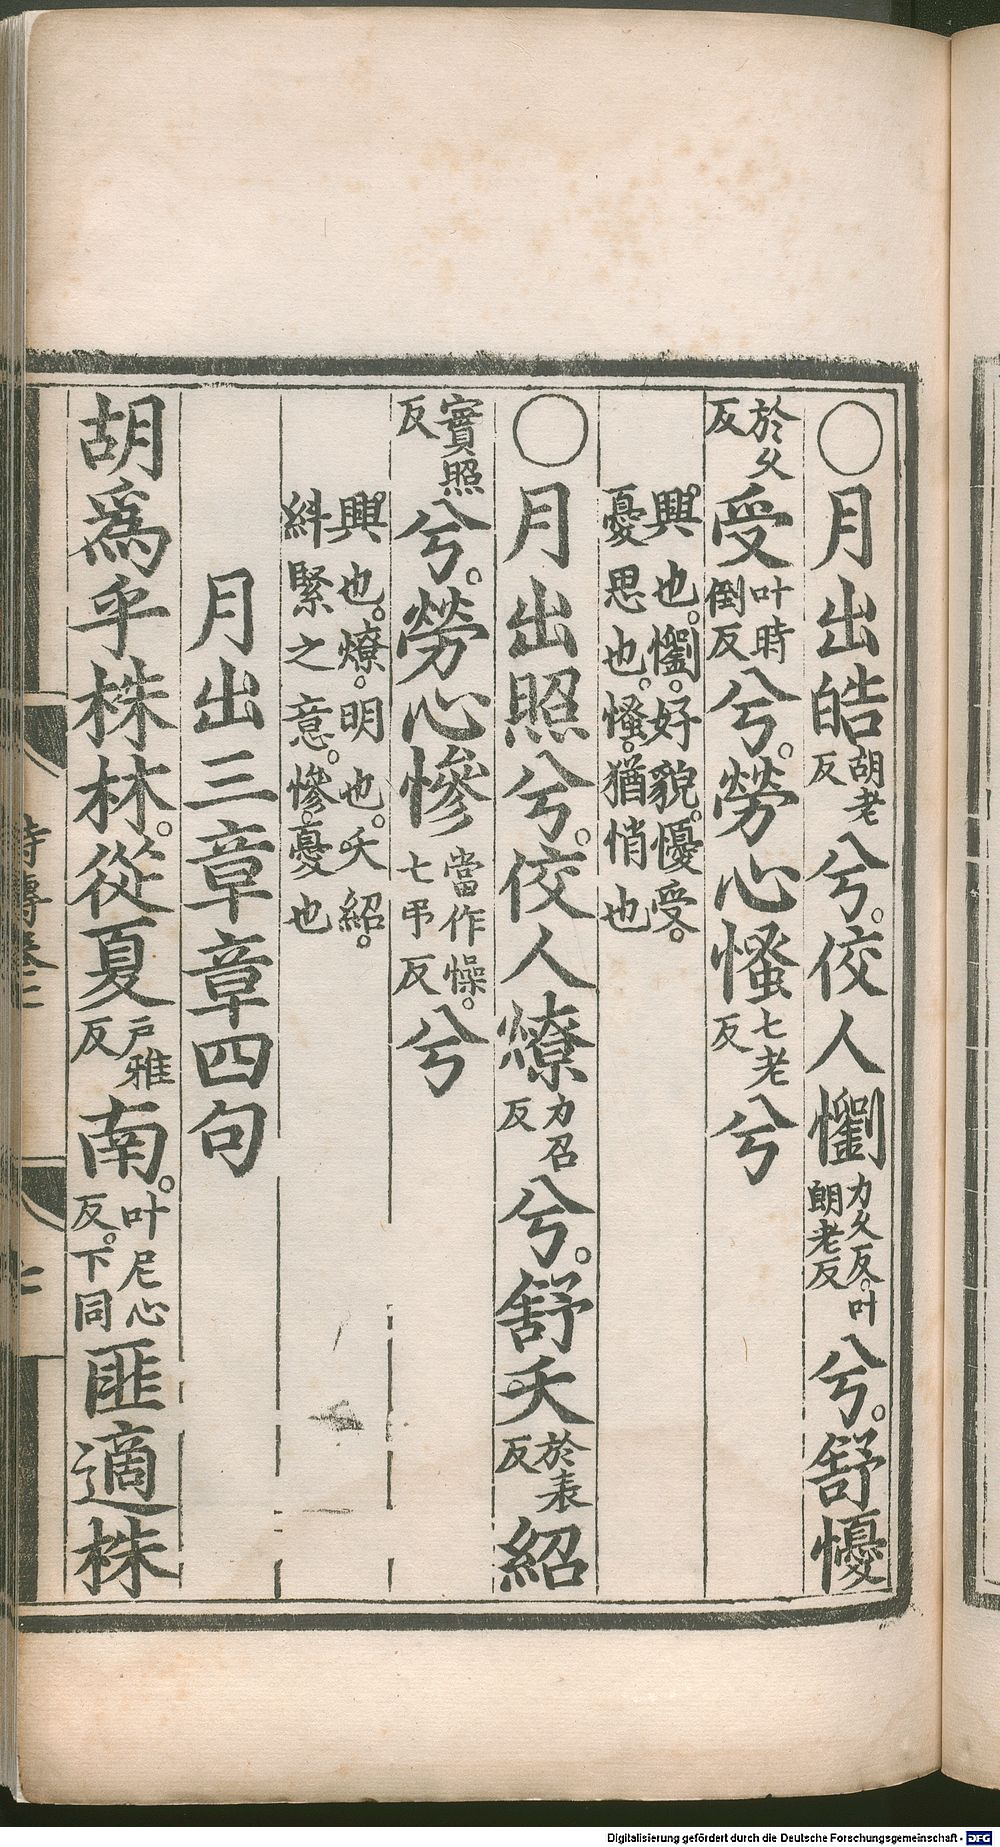 ○月出皓胡老反兮。佼人懰力久反。叶朗老反兮。舒懮
於久反受叶時倒反兮。勞心慅七老反兮
興也。懰。好貌。懮受。憂思也。慅。猶悄也
○月出照兮。佼人燎力召反兮。舒夭於表反紹
實照反兮。勞心慘當作懆。七弔反兮
興也。燎。明也。夭紹。糾緊之意。慘。憂也
月出三章章四句
胡爲乎株林。從夏戶雅反南。叶尼心反。下同匪適株
詩傳卷三
Digitalisierung gefördert durch die Deutsche Forschungsgemeinschaft - DFG